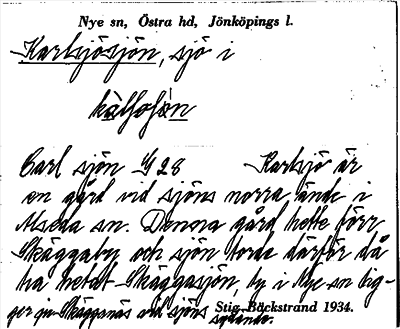 Nye sn, Östra hd, Jönköpings l.
Karlsjösjön, sjö i
Carl sjön G 28 Karlsjö är
en gård vid sjöns norra ände i
Alseda sn. Denna gård hette förr
Skäggaby och sjön torde därför då
ha hetat Skäggasjön, ty i Nye sn lig-
ger ju Skägganäs vid sjöns
Stig Bäckstrand 1934.